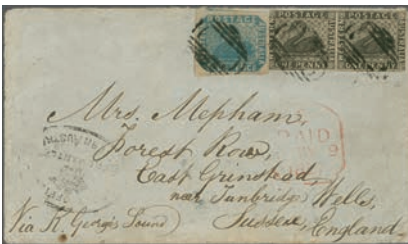 POSTAGE
POSTAGE
POSTAGE
ONE PENNY
ONE PENNY
Mrs. Mepham,
Forest Row,
East Grinstead,
near Tunbridge Wells,
Sussex, England.
Via K. George's Sound
PAID